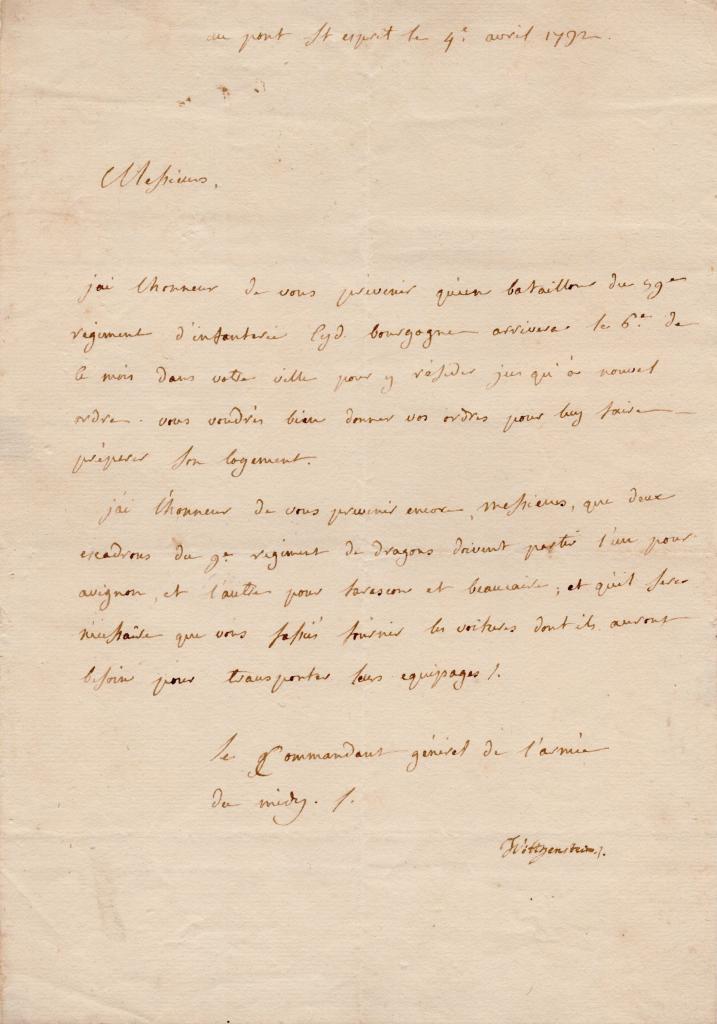 au pont st esprit le 4.e avril 1792.
Messieurs,
j'ai l'honneur de vous prévenir qu'un bataillon du 59e
régiment d'infanterie cyd. bourgogne arrivera le 6.e de
ce mois dans votre ville pour y résider jusqu'à nouvel
ordre. vous voudrés bien donner vos ordres pour luy faire
préparer son logement.
j'ai l'honneur de vous prévenir encore, messieurs, que deux
escadrons du 9.e régiment de dragons doivent partir l'un pour
avignon, et l'autre pour tarascon et beaucaire; et qu'il sera
nécessaire que vous fassiés fournir les voitures dont ils auront
besoin pour transporter leurs equipages /.
le Commandant général de l'armée
du midy. /.
Wittgenstein /.